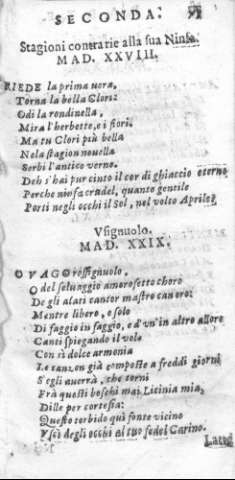 SECONDA.
Stagioni contrarie alla sua Ninfa.
MAD. XXVIII.
RIEDE la prima vera,
Torna la bella Clori:
Odi la rondinella,
Mira l'herbette, e i fiori.
Ma tu Clori più bella
Nela stagion nouella
Serbi l'antico verno.
Deh s'hai pur cinto il cor di ghiaccio eterno
Perche ninfa crudel, quanto gentile
Porti negli occhi il Sol, nel volto Aprile?
Vsignuolo.
MAD. XXIX.
O VAGO rossignuolo,
O del seluaggio amorosetto choro
De gli alati cantor mastro canoro:
Mentre libero, e solo
Di faggio in faggio, e d'vn' in altro allore
Canti spiegando il volo
Con si dolce armonia
Le canzon già composte a freddi giorni
S'egli auerrà, che torni
Frà questi boschi mai Licinia mia,
Dille per cortesia:
Questo torbido quì fonte vicino
Vscì degli occhi al tuo fedel Carino.